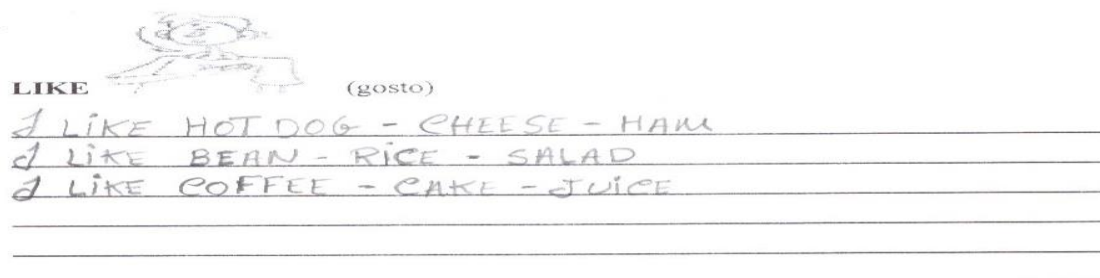 LIKE (gosto)
I LIKE HOT DOG - CHEESE - HAM
I LIKE BEAN - RICE - SALAD
I LIKE COFFEE - CAKE - JUICE